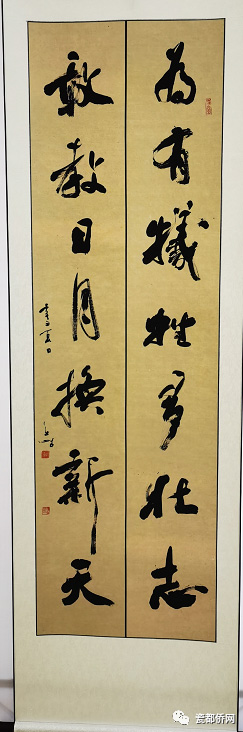 為有犧牲多壯志
敢教日月換新天
瓷都侨网